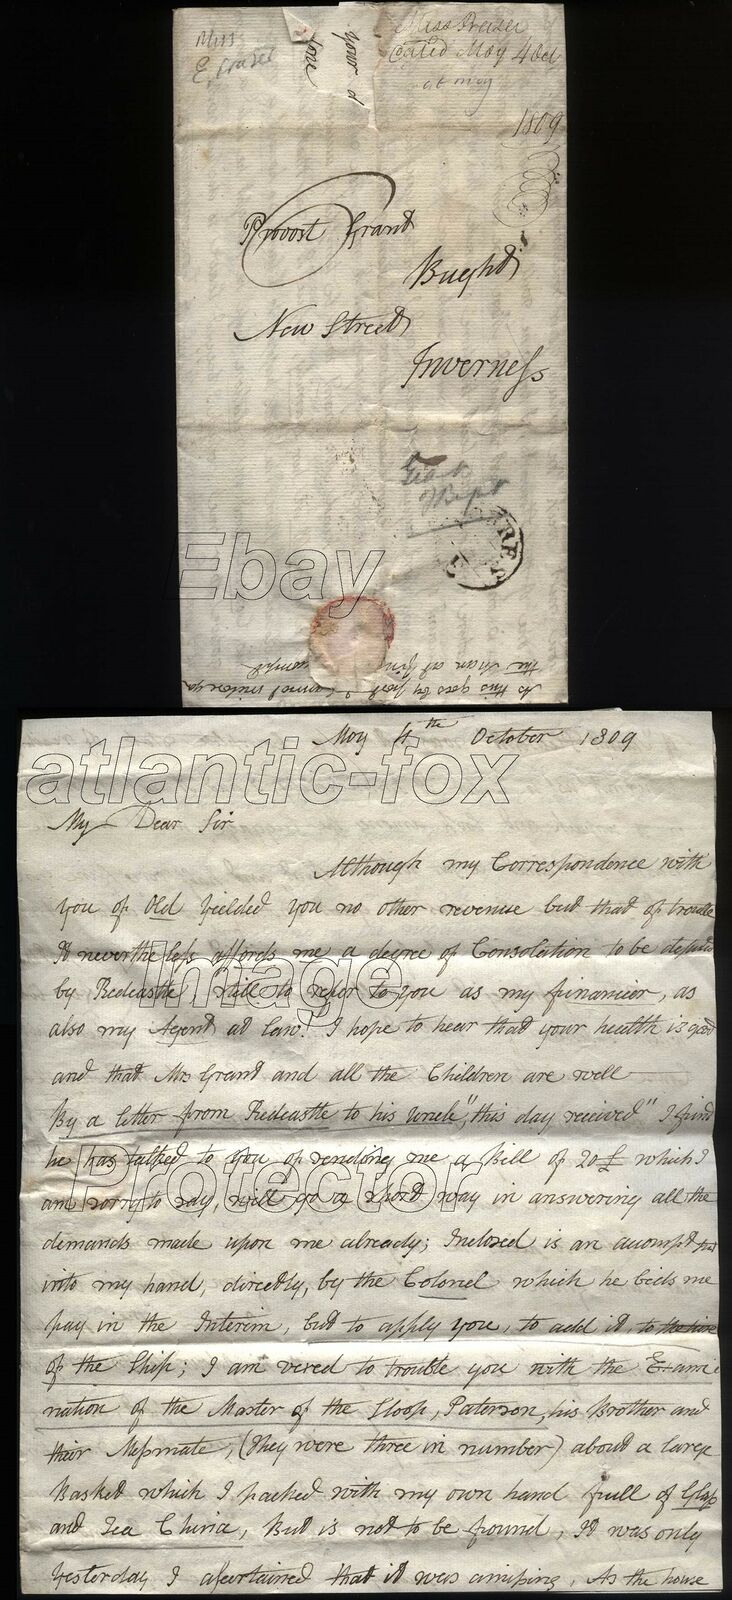 Miss
E. Fraser
your d
Miss Fraser
Dated Moy 4 Oct
at moy
1809
Provost Grant
Bught
New Street
Inverness
Ebay
As this goes by post I cannot
the man at
atlantic-fox
Moy 4th October 1809
My Dear Sir
Although my Correspondence with
you of Old Yielded you no other revenue but that of trouble
It nevertheless affords me a degree of Consolation to be
by Redcastle still to refer to you as my financier, as
also my Agent at Law! I hope to hear that your health is good
and that Mrs Grant and all the Children are well
By a letter from Redcastle to his Uncle, "this day received" I find
he has talked to you of sending me a Bill of 20£ which I
am sorry to say, will go a short way in answering all the
demands made upon me already; Inclosed is an accompt
into my hand, directly, by the Colonel which he bids me
pay in the Interim, but to apply you, to add it, to the hire
of the Ship; I am vexed to trouble you with the Exami
nation of the Master of the Sloop, Paterson, his Brother and
their Messmate, (They were three in number) about a large
Basket which I packed with my own hand full of Glass
and Tea China, But is not to be found, It was only
Yesterday I assertained that it was amissing, As the house
Image
Protector